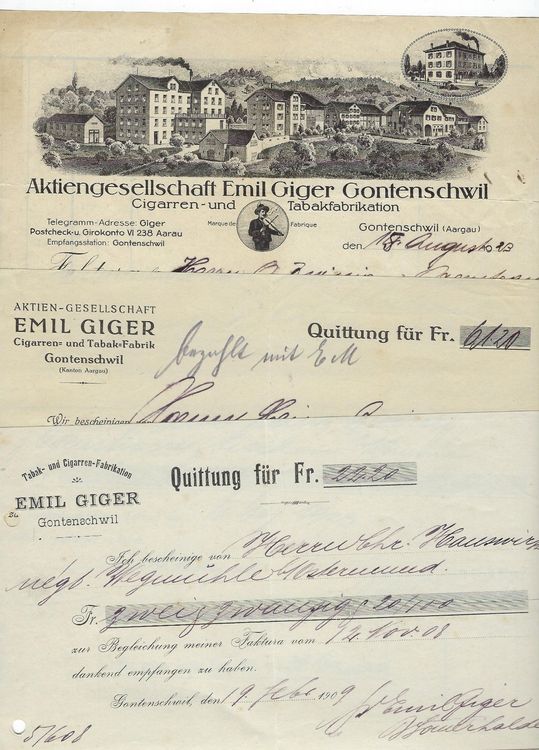 Aktiengesellschaft Emil Giger Gontenschwil
Cigarren- und Tabakfabrikation
Telegramm-Adresse: Giger
Postcheck-u. Girokonto VI 238 Aarau
Empfangsstation: Gontenschwil
Marque de Fabrique
Gontenschwil (Aargau)
den 18. August 1923
Herrn
AKTIEN-GESELLSCHAFT
EMIL GIGER
Cigarren- und Tabak-Fabrik
Gontenschwil
(Kanton Aargau)
Quittung für Fr. 61.20
bezahlt mit E M
Wir bescheinigen von Herrn
Tabak- und Cigarren-Fabrikation
EMIL GIGER
Gontenschwil
Quittung für Fr. 22.20
Ich bescheinige von Herrn Chr. Hauswirth
negt. Wegmühle b/Ostermund.
Fr. zweizwanzig & 20/100
zur Begleichung meiner Faktura vom 12 Nov 08
dankend empfangen zu haben.
Gontenschwil, den 19 Febr 1909
Emil Giger
5/608